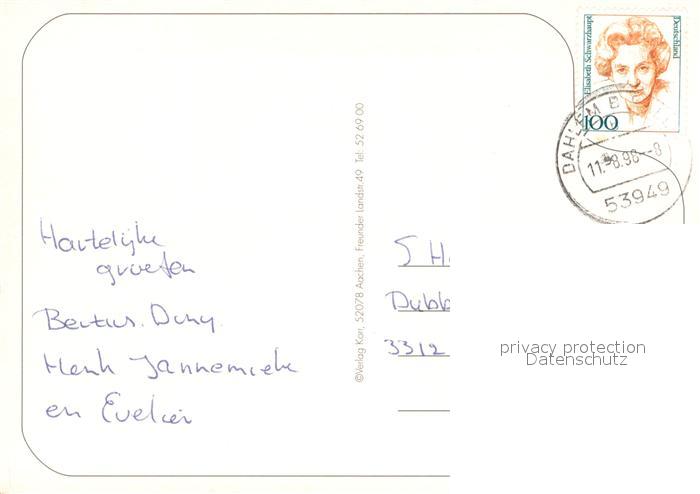 Hartelijke
groeten
Bertus. Dany
Henk Jannemieke
en Evelien
©Verlag Korr, 52078 Aachen, Freunder Landstr.49 Tel: 52 69 00
Elisabeth Schwarzhaupt
Deutschland
100
DAHLEM
11.-8.98.--8
53949
S H
Dubb
3312
privacy protection
Datenschutz